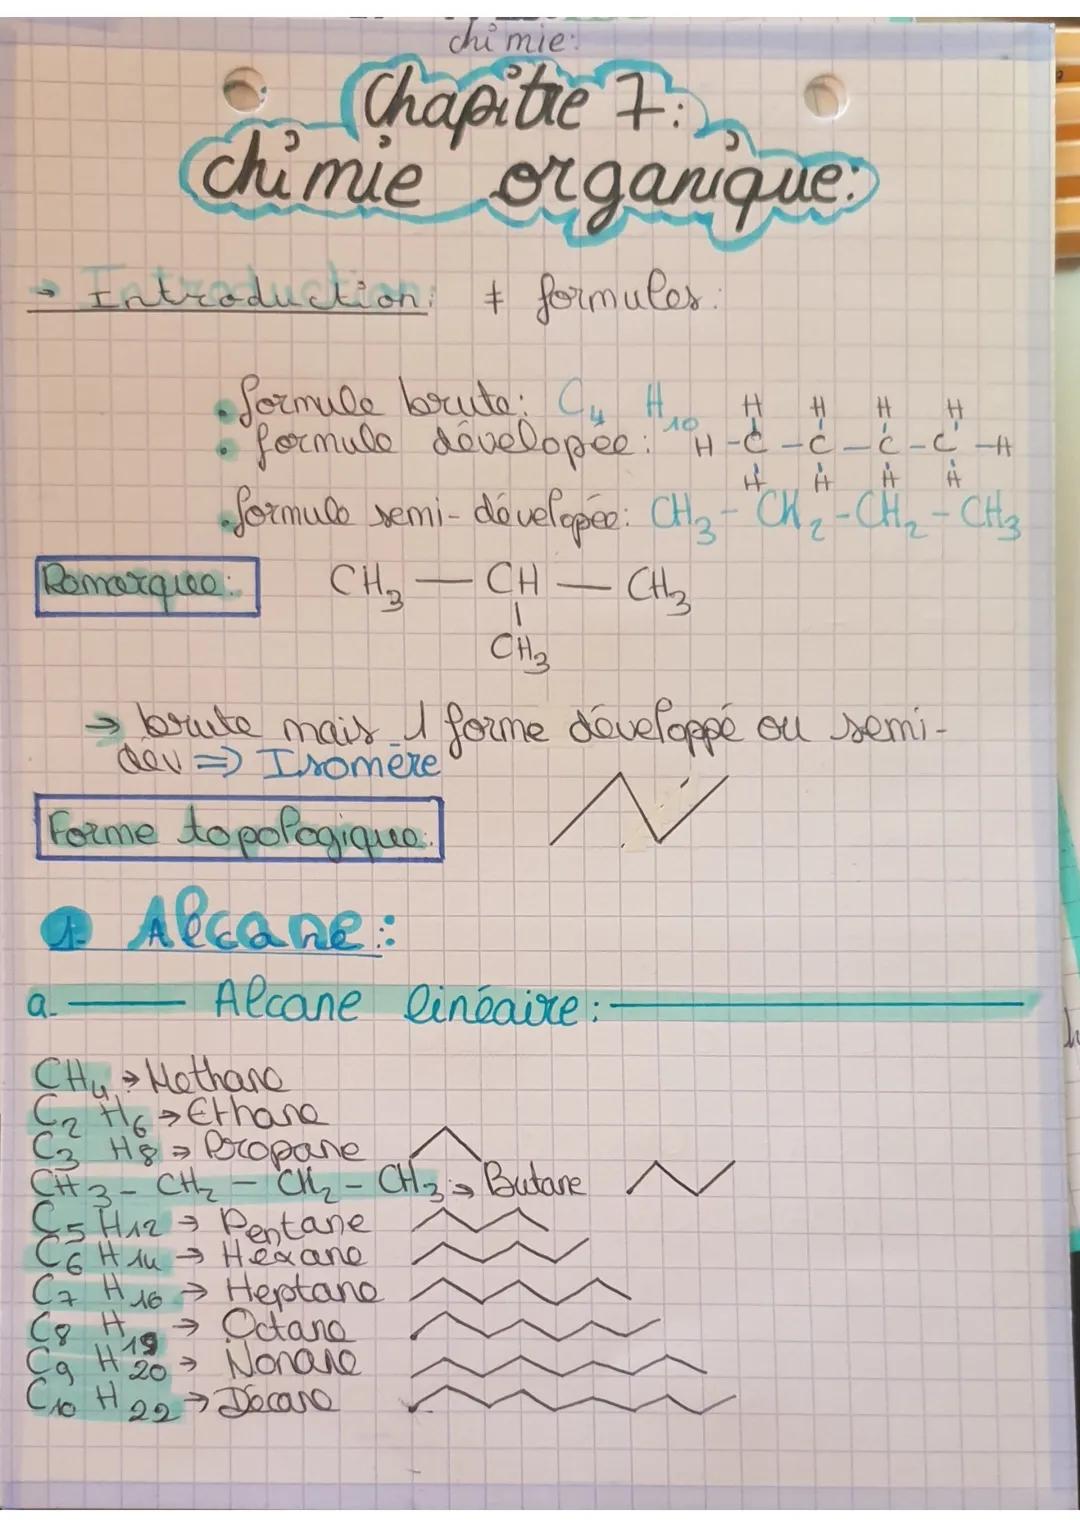 chimie:
Chapitre 7:
chimie organique:
→ Introduction: ≠ formules:
• formule brute: C₄ H₁₀
H H H H
• formule dévelopée: H - C - C - C - C - H
H H H H
• formule semi-dévelopée: CH₃ - CH₂ - CH₂ - CH₃
Remarque: CH₃ — CH — CH₃
|
CH₃
→ brute mais 1 forme développé ou semi-
dev ⇒ Isomère
Forme topologique:
1- Alcane:
a. Alcane linéaire:
CH₄ → Methane
C₂ H₆ → Ethane
C₃ H₈ → Propane
CH₃ - CH₂ - CH₂ - CH₃ → Butane
C₅ H₁₂ → Pentane
C₆ H₁₄ → Hexane
C₇ H₁₆ → Heptane
C₈ H₁₉ → Octane
C₉ H₂₀ → Nonane
C₁₀ H₂₂ → Décane